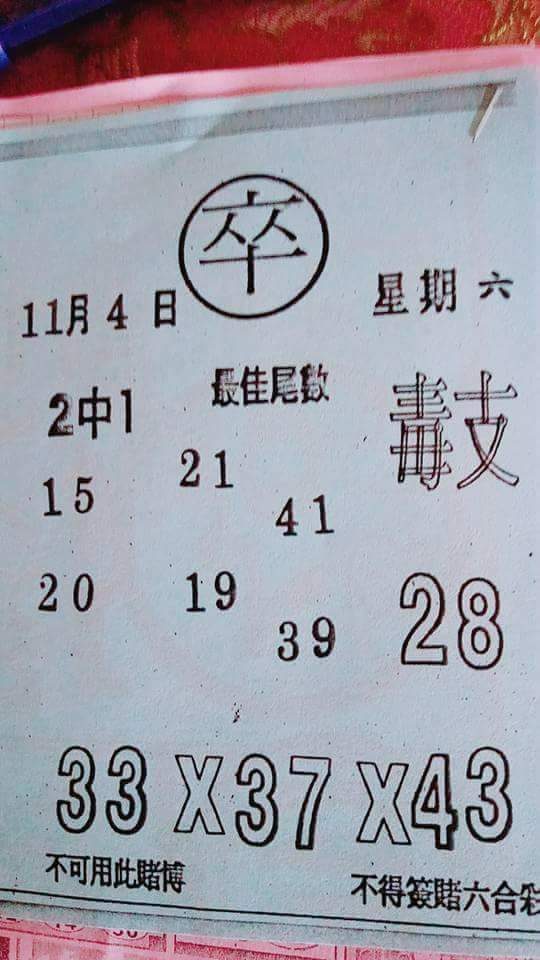 卒
11月4日 星期六
2中1 最佳尾數 毒支
15 21 41
20 19 39 28
33X37X43
不可用此賭博 不得簽賭六合彩